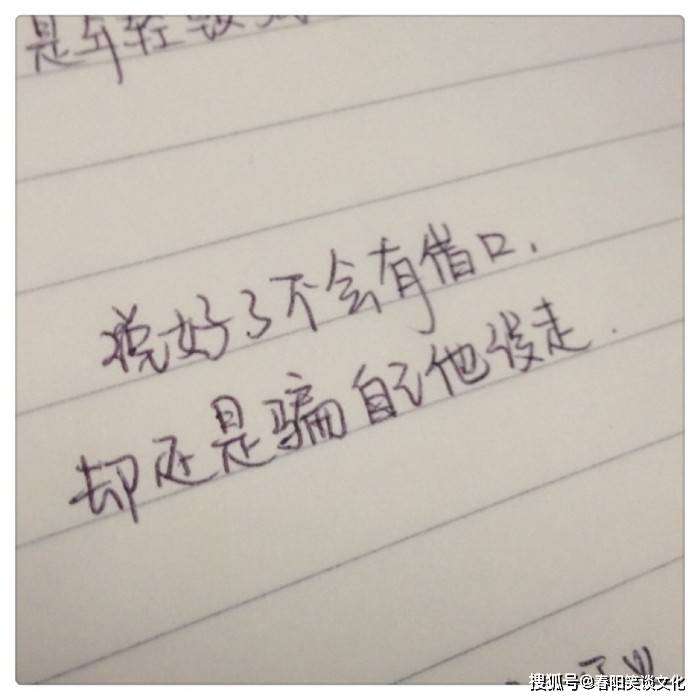 是年轻
说好了不会有借口.
却还是骗自己他没走.
搜狐号@春阳笑谈文化